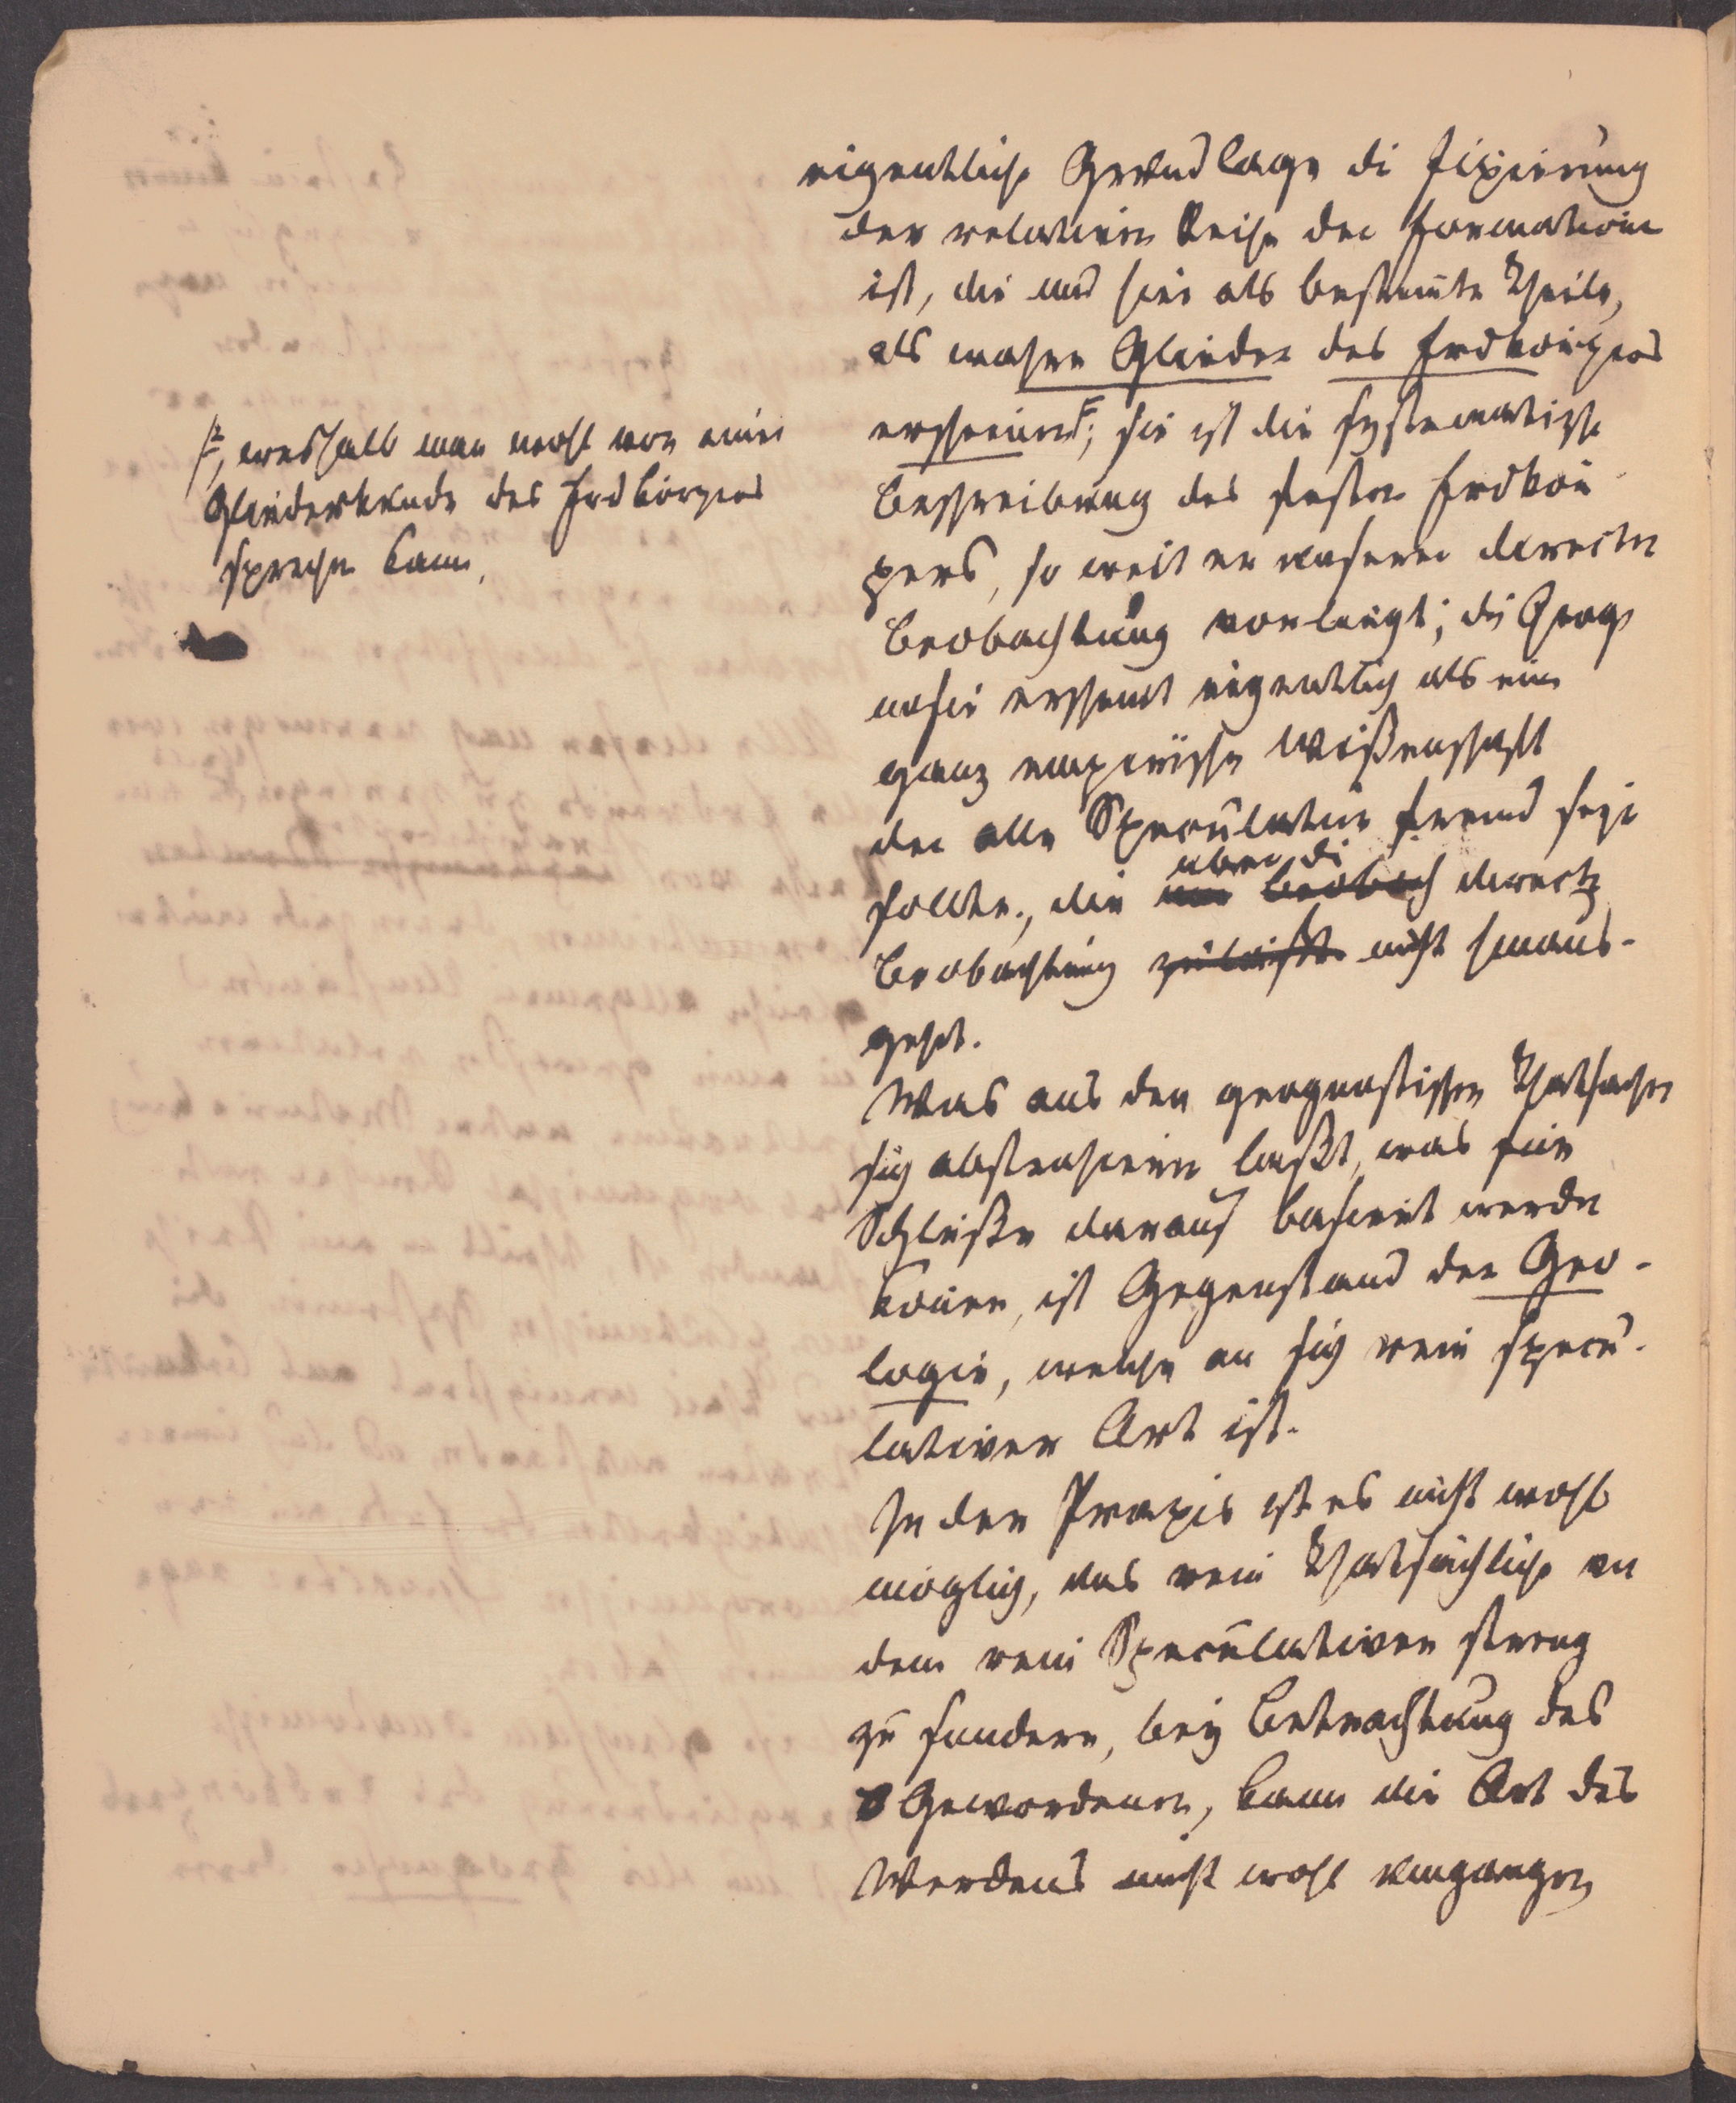 eigentliche Grundlage di Fixirung
der relativen Reihe der Formation
ist, die uns hier als bestimte Theile,
als wahre Glieder des Erdkörpers
erscheinen F; sie ist die systematische
Beschreibung des festen Erdkör
pers, so weit er unserer directen
Beobachtung vorliegt; die Geog
nosie erscheint eigentlich als eine
ganz empirische Wißenschaft
der alle Speculation fremd seyn
sollte., die nur beobach über di directe
Beobachtung zuläßt nicht hinaus-
geht.
Was aus den geognostischen Thatsachen
sich abstrahiren laßt, was für
Schlüße darauf basirt werden
könen, ist Gegenstand der Geo-
logie, welche an sich rein specu-
lativer Art ist.
In der Praxis ist es nicht wohl
möglich, das rein Thatsächliche von
dem rein Speculativen streng
zu sondern, bey Betrachtung des
Gewordenen, kann die Art des
Werdens nicht wohl umgangen
F, weshalb man wohl von einer
Gliederkunde des Erdkörpers
sprechen kann,